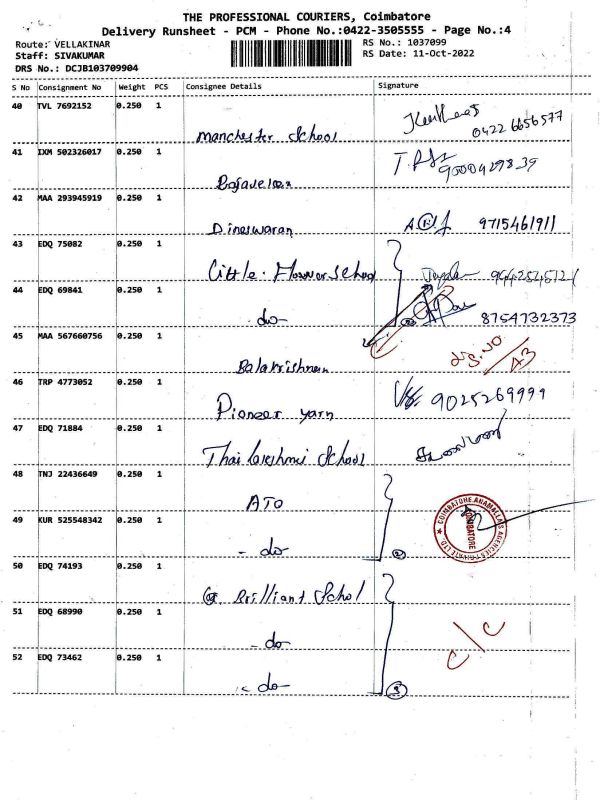 THE PROFESSIONAL COURIERS, Coimbatore
Delivery Runsheet - PCM - Phone No.:0422-3505555 - Page No.:4
Route: VELLAKINAR
RS No.: 1037099
Staff: SIVAKUMAR
RS Date: 11-Oct-2022
DRS No.: DCJB103709904
S No Consignment No Weight PCS Consignee Details Signature
40 TVL 7692152 0.250 1
Manchester School 0422 6656577
41 IXM 502326017 0.250 1
42 MAA 293945919 0.250 1
Dineswaran 9715461911
43 EDQ 75082 0.250 1
Little Flower School
44 EDQ 69841 0.250 1
- do - 8754732373
45 MAA 567660756 0.250 1
Balakrishnan
46 TRP 4773052 0.250 1
Pioneer yarn 9025269999
47 EDQ 71884 0.250 1
Thai Lakshmi School
48 TNJ 22436649 0.250 1
ATO
COIMBATORE ANAMALLAIS AGENCIES PRIVATE LTD.
COIMBATORE
49 KUR 525548342 0.250 1
- do - 2
50 EDQ 74193 0.250 1
Brilliant School
51 EDQ 68990 0.250 1
- do -
C/C
52 EDQ 73462 0.250 1
- do - 3